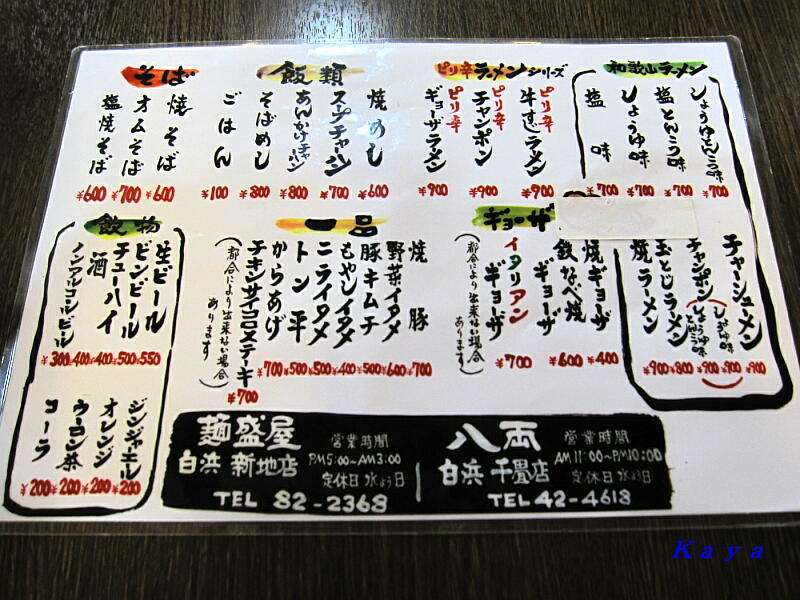 和歌山ラーメン
しょうゆとんこつ味 ¥700
塩とんこつ味 ¥700
しょうゆ味 ¥700
塩味 ¥700
チャーシューメン ¥900
チャンポン
しょうゆ味 ¥900
しょうゆとんこつ味 ¥900
玉とじラーメン ¥800
焼ラーメン ¥900
ピリ辛ラーメンシリーズ
ピリ辛牛すじラーメン ¥900
ピリ辛チャンポン ¥900
ピリ辛ギョーザラーメン ¥900
飯類
焼めし ¥600
スープチャーハン ¥700
あんかけチャーハン ¥800
そばめし ¥800
ごはん ¥100
そば
焼そば ¥600
オムそば ¥700
塩焼そば ¥600
ギョーザ
焼ギョーザ ¥400
鉄なべ焼ギョーザ ¥600
イタリアンギョーザ ¥700
(都合により出来ない場合あります)
一品
焼豚 ¥700
野菜イタメ ¥600
豚キムチ ¥500
もやしイタメ ¥400
ニライタメ ¥500
トン平 ¥500
からあげ ¥700
チキンサイコロステーキ ¥700
(都合により出来ない場合あります)
飲物
生ビール ¥550
ビンビール ¥500
チューハイ ¥400
酒 ¥400
ノンアルコールビール ¥300
ジンジャエール ¥200
オレンジ ¥200
ウーロン茶 ¥200
コーラ ¥200
麺盛屋
白浜 新地店
営業時間
PM5:00~AM3:00
定休日 水よう日
TEL 82-2368
八両
白浜 千畳店
営業時間
AM11:00~PM10:00
定休日 水よう日
TEL 42-4618
Kaya